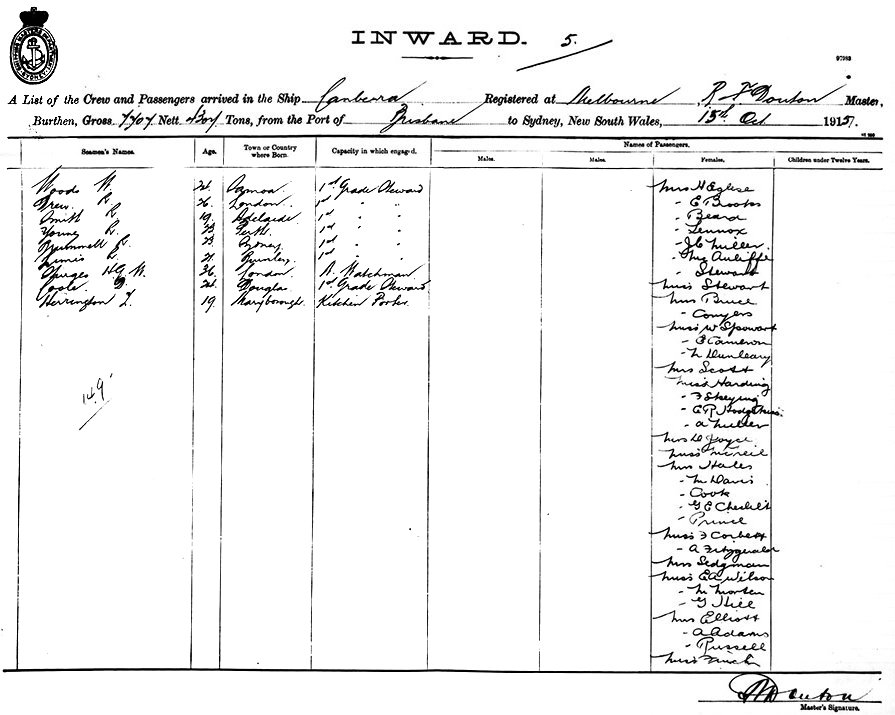 INWARD. 5.
97963
A List of the Crew and Passengers arrived in the Ship Canberra Registered at Melbourne R Douton Master,
Burthen, Gross 7707 Nett Tons, from the Port of Brisbane to Sydney, New South Wales, 15th Oct 1915.
Seamen's Names. Age. Town or Country where Born. Capacity in which engaged. Names of Passengers.
Males. Males. Females. Children under Twelve Years.
Woods W. 24. Samoa. 1st Grade Steward
Drew R 26. London. 1st " "
Smith R 19. Adelaide. 1st " "
Young R. 23 Perth. 1st " "
R. 23. Sydney. 1st " "
R. 21. 1st " "
H.G.W. 36. London. Watchman.
Coole D. 24. Douglas 1st Grade Steward
Herrington T. 19 Maryborough. Kitchen Porter.
149
Mrs H Eglese
- E Books
- Beard
- Lennox
- J C Miller.
- McAuliffe
- Stewart
Miss Stewart
Mrs Bruce
- Conyers
Miss W Spowart
- C Cameron
- M Dunleavy
Mrs Scott
Miss Harding
- F Skeying
- E R
- A
Mrs D Joyce
Miss McNeil
Mrs Hales
- M Davis
- Cook
- G E
- Prince
Miss F Corbett
- A Fitzgerald
Mrs Sedgman
Miss E A Wilson
- M Morten
- G Hill
Mrs Elliott
- A Adams
- Russell
Miss Finch
Douton
Master's Signature.